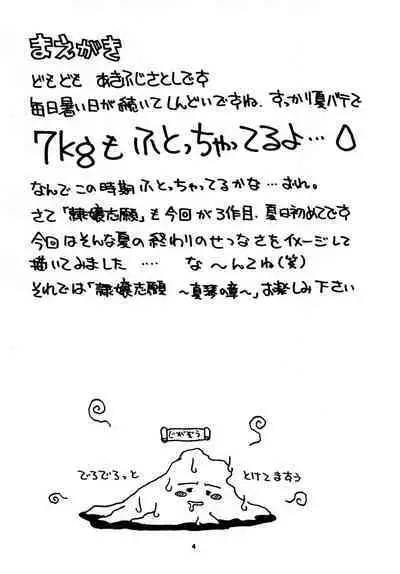 まえがき
どもども あきふじさとしです
毎日暑い日が続いてしんどいですね、すっかり夏バテで
7kgもふとっちゃってるよ…
なんでこの時期ふとっちゃってるかな…おれ。
さて「隷嬢志願」も今回が3作目、夏は初めてです
今回はそんな夏の終わりのせつなさをイメージして
描いてみました…‥ な〜んてね(笑)
それでは「隷嬢志願 〜真琴の章〜」お楽しみ下さい
じがぞう
でろでろっと
とけてますう
4